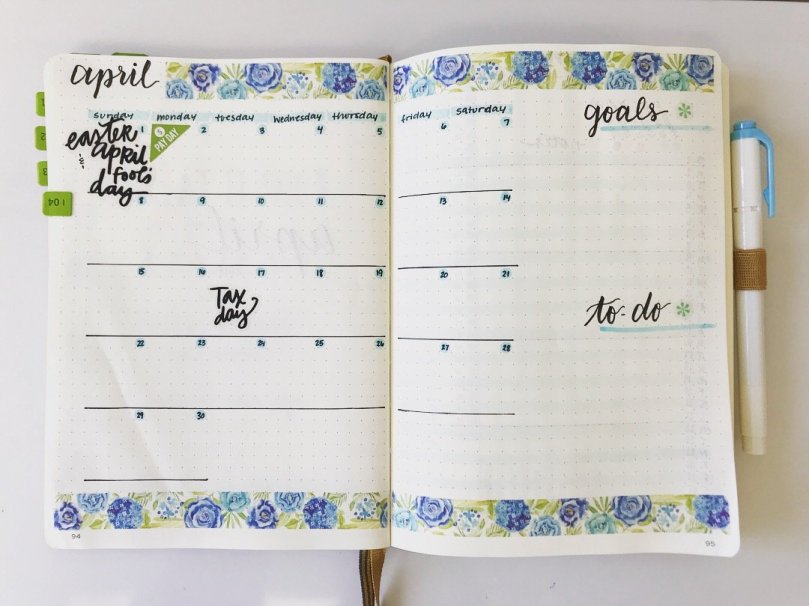 april
sunday monday tuesday wednesday thursday friday saturday
1 2 3 4 5 6 7
easter
-&-
april
fools
day
$ PAY DAY
8 9 10 11 12 13 14
15 16 17 18 19 20 21
Tax
day
22 23 24 25 26 27 28
29 30
goals
to-do
104
94
95